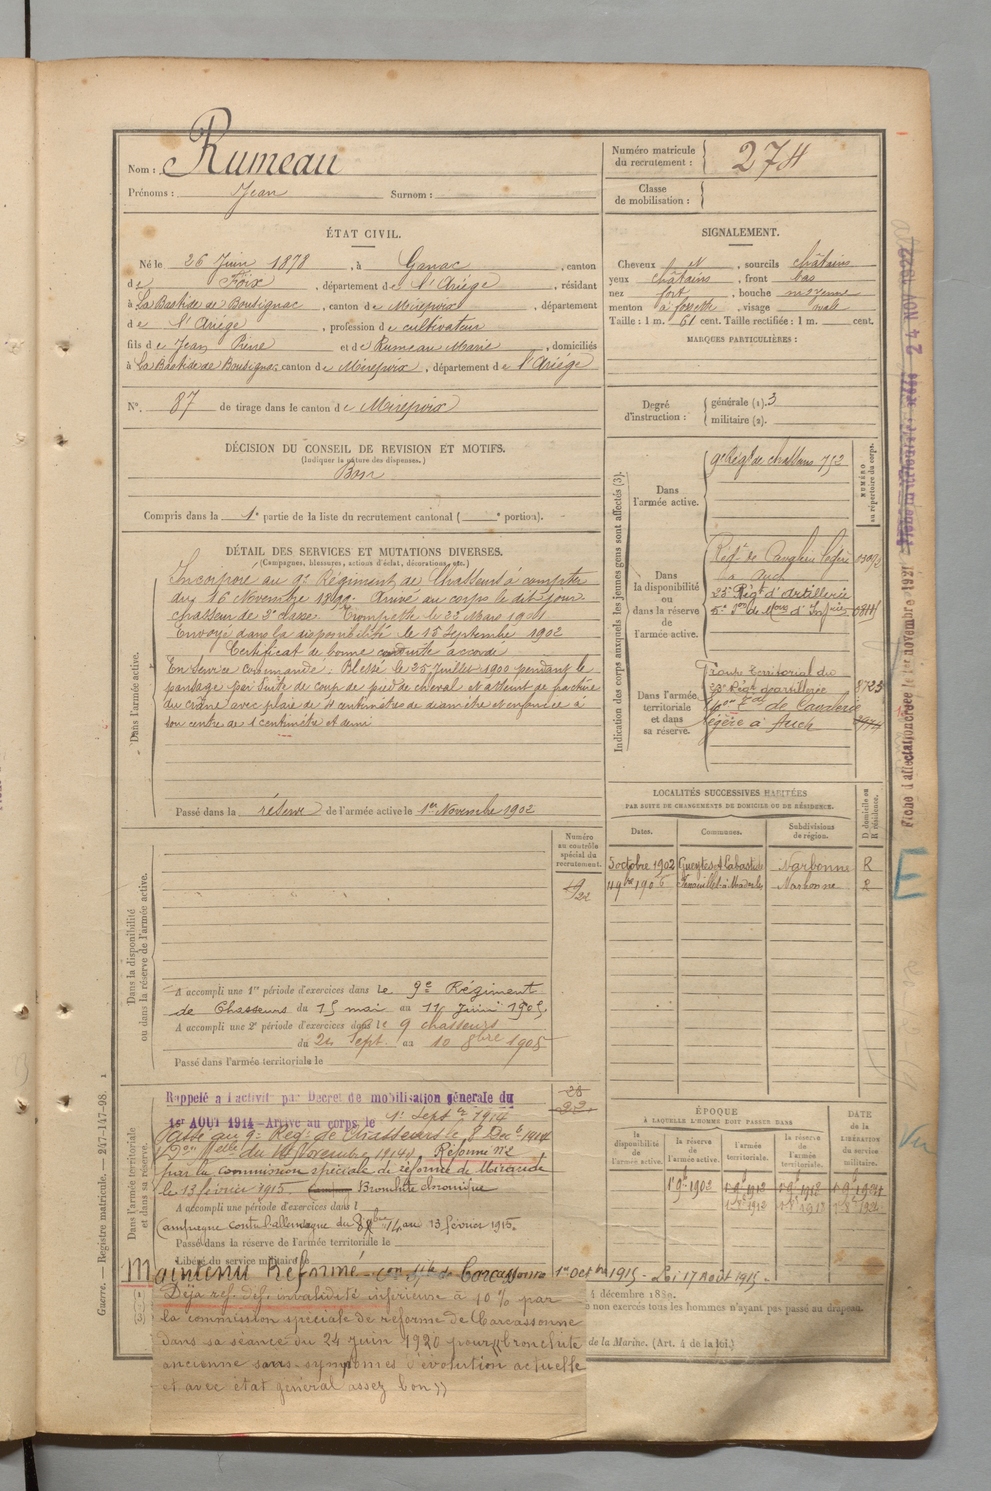 Nom : Rumeau
Prénoms : Jean Surnom :
Numéro matricule du recrutement : 274
Classe de mobilisation :
ÉTAT CIVIL.
Né le 26 Juin 1878, à Ganac, canton
de Foix, département de l'Ariège, résidant
à La Bastide de Bousignac, canton de Mirepoix, département
de l'Ariège, profession de cultivateur
fils de Jean Pierre et de Rumeau Marie, domiciliés
à La Bastide de Bousignac, canton de Mirepoix, département de l'Ariège
N°. 87 de tirage dans le canton de Mirepoix
SIGNALEMENT.
Cheveux, sourcils châtains
yeux châtains, front bas
nez fort, bouche moyenne
menton à fossette, visage ovale
Taille : 1 m. 61 cent. Taille rectifiée : 1 m. cent.
MARQUES PARTICULIÈRES :
Degré d'instruction : générale (1). 3
militaire (2).
DÉCISION DU CONSEIL DE REVISION ET MOTIFS.
(Indiquer la nature des dispenses.)
Bon
Compris dans la 1e partie de la liste du recrutement cantonal ( e portion).
DÉTAIL DES SERVICES ET MUTATIONS DIVERSES.
(Campagnes, blessures, actions d'éclat, décorations, etc.)
Dans l'armée active.
Incorporé au 9e Régiment de Chasseurs à compter
du 16 Novembre 1899. Arrivé au corps le dit jour
chasseur de 2e classe. Trompette le 22 Mars 1901
Envoyé dans la disponibilité le 15 Septembre 1902
Certificat de bonne conduite accordé
En service commandé : Blessé le 25 Juillet 1900 pendant le
pansage par suite de coup de pied de cheval et atteint de fracture
du crâne avec plaie de 4 centimètres de diamètre et enfoncée à
son centre de 1 centimètre et demi
Passé dans la réserve de l'armée active le 1er Novembre 1902
Indication des corps auxquels les jeunes gens sont affectés (3).
NUMÉRO au répertoire du corps.
Dans l'armée active.
9e Régt de chasseurs 752
Dans la disponibilité ou dans la réserve de l'armée active.
à Auch
23e Régt d'Artillerie
Dans l'armée territoriale et dans sa réserve.
Train Territorial du
23e Régt d'artillerie 8723
de Cavalerie
légère à Auch
LOCALITÉS SUCCESSIVES HABITÉES
PAR SUITE DE CHANGEMENTS DE DOMICILE OU DE RÉSIDENCE.
Dates. Communes. Subdivisions de région. D domicile ou R résidence.
5 octobre 1902 Narbonne R
Narbonne R
Numéro au contrôle spécial du recrutement.
Dans la disponibilité ou dans la réserve de l'armée active.
A accompli une 1re période d'exercices dans le 9e Régiment
de Chasseurs du 15 mai au 11 Juin 1905
A accompli une 2e période d'exercices dans le 9 chasseurs
du Sept. au 10 8bre 1908
Passé dans l'armée territoriale le
Dans l'armée territoriale et dans sa réserve.
Rappelé à l'activité par Décret de mobilisation générale du
1er AOUT 1914 - Arrivé au corps le 1er Septbre 1914
Passé au 9e Régt de Chasseurs le 8 Decbre 1914
Réformé n°2
par la commission spéciale de réforme de Mirande
le 13 février 1915. Bronchite chronique
A accompli une période d'exercices dans l
Campagne contre l'allemagne du au 13 février 1915.
Passé dans la réserve de l'armée territoriale le
Libéré du service militaire le
Maintenu Réformé - de Carcassonne 1er Octbre 1915 - Loi 17 Août 1915 -
Déjà réf. déf. invalidité inférieure à 10 % par
la commission spéciale de réforme de Carcassonne
dans sa séance du 24 juin 1920 pour "bronchite
ancienne sans symptômes d'évolution actuelle
et avec état général assez bon"
ÉPOQUE
À LAQUELLE L'HOMME DOIT PASSER DANS
la disponibilité de l'armée active. la réserve de l'armée active. l'armée territoriale. la réserve de l'armée territoriale.
DATE DE LA LIBÉRATION du service militaire.
4 décembre 1889.
non exercés tous les hommes n'ayant pas passé au drapeau.
de la Marine. (Art. 4 de la loi.)
Guerre. — Registre matricule. — 247-147-98. 1
24 NOV 1922
E